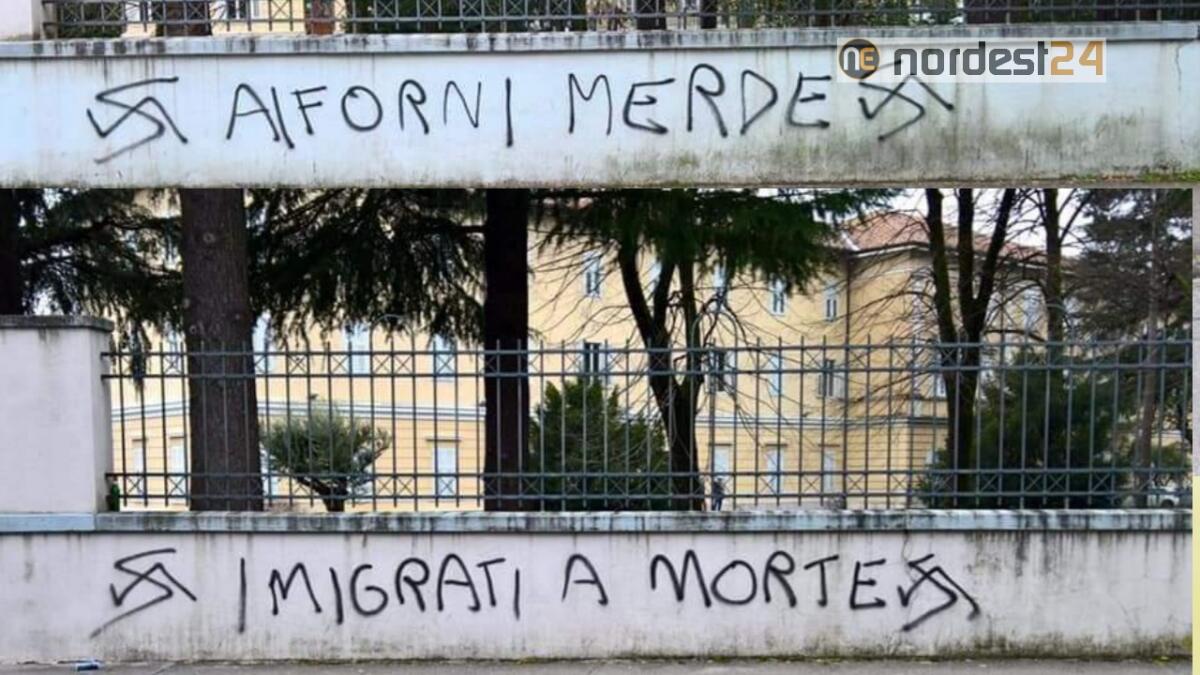 nordest24
AI FORNI MERDE
IMIGRATI A MORTE